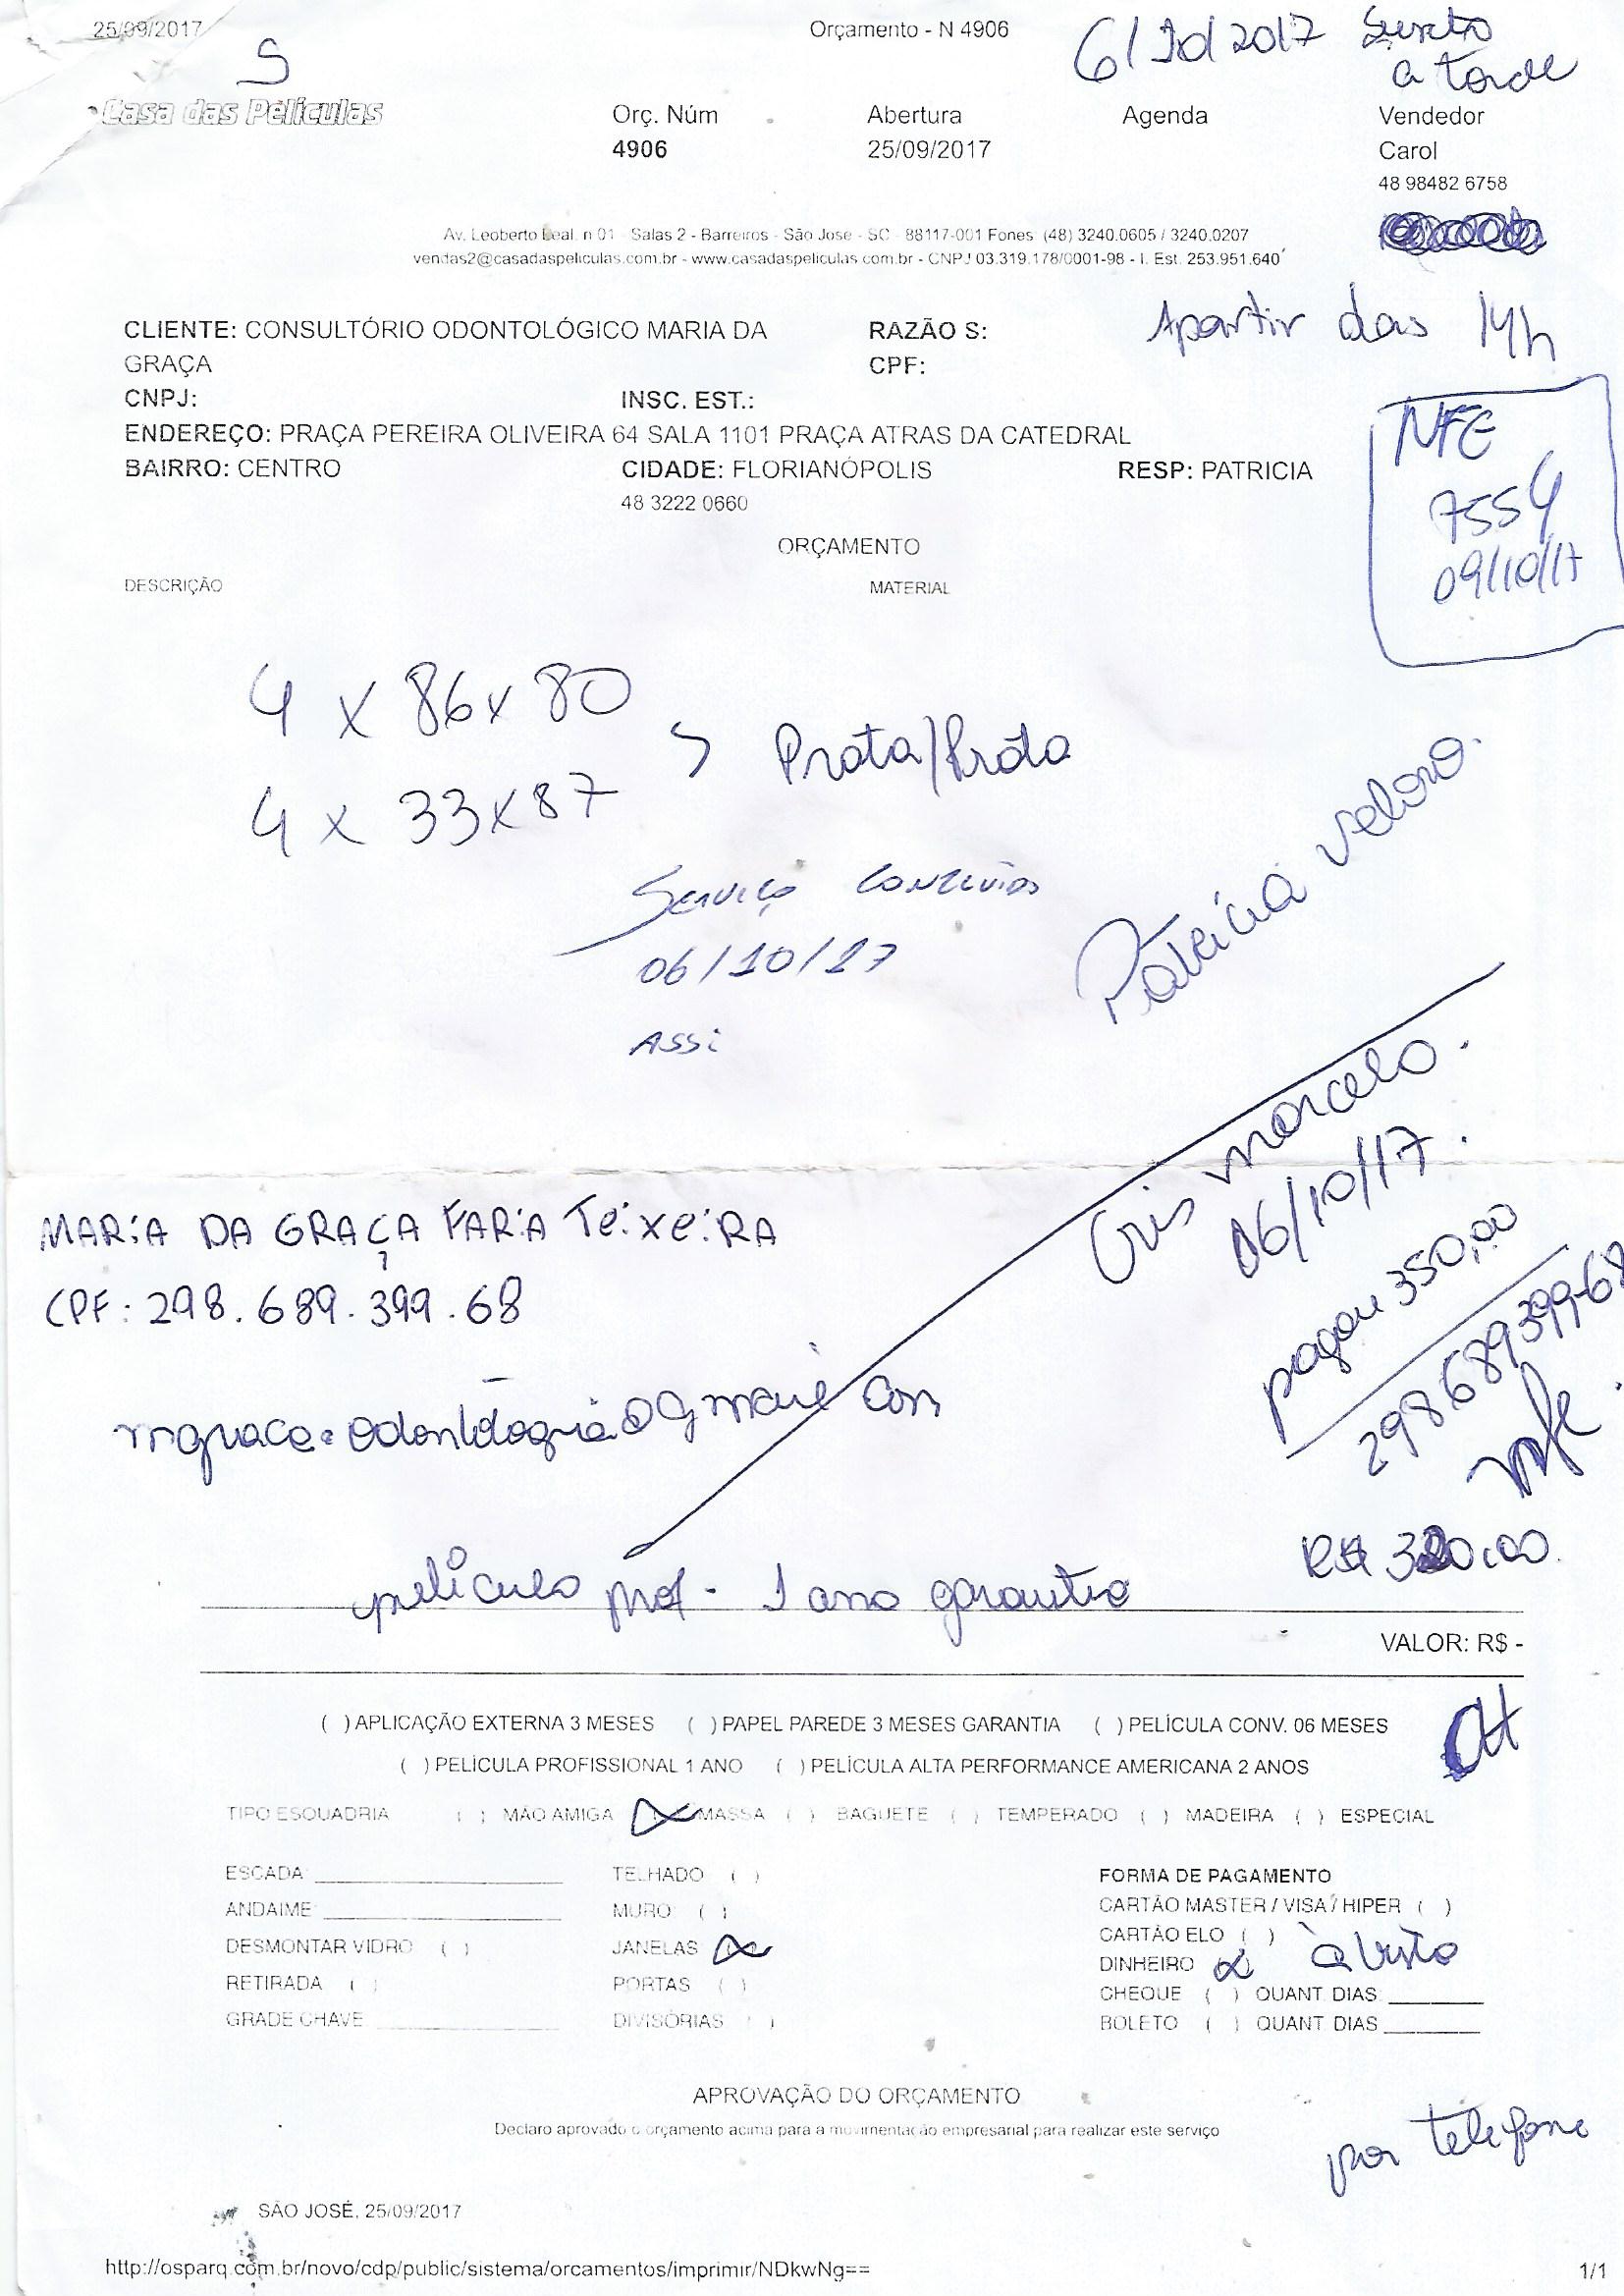 25/09/2017
Orçamento - N 4906
6/10/2017 Sexta
a tarde
S
Casa das Películas
Orç. Núm
Abertura
Agenda
Vendedor
4906
25/09/2017
Carol
48 98482 6758
Av. Leoberto Leal, n 01 - Salas 2 - Barreiros - São José - SC - 88117-001 Fones: (48) 3240.0605 / 3240.0207
vendas2@casadaspeliculas.com.br - www.casadaspeliculas.com.br - CNPJ 03.319.178/0001-98 - I. Est. 253.951.640
Apartir das 14h
CLIENTE: CONSULTÓRIO ODONTOLÓGICO MARIA DA
GRAÇA
RAZÃO S:
CPF:
CNPJ:
INSC. EST.:
ENDEREÇO: PRAÇA PEREIRA OLIVEIRA 64 SALA 1101 PRAÇA ATRAS DA CATEDRAL
BAIRRO: CENTRO
CIDADE: FLORIANÓPOLIS
RESP: PATRICIA
48 3222 0660
NFE
7554
09/10/17
ORÇAMENTO
DESCRIÇÃO
MATERIAL
4 x 86x80
4 x 33x87
> Prata/Prata
Serviço
06/10/17
Assi
Patricia
Cris Marcelo.
06/10/17.
pagou 350,00
298689399-68
nfe.
MARIA DA GRAÇA FARIA TEIXEIRA
CPF: 298.689.399.68
mgraca.odontologia@gmail com
R$ 320,00
película prof - 1 ano garantia
VALOR: R$ -
( ) APLICAÇÃO EXTERNA 3 MESES ( ) PAPEL PAREDE 3 MESES GARANTIA ( ) PELÍCULA CONV. 06 MESES
( ) PELÍCULA PROFISSIONAL 1 ANO ( ) PELÍCULA ALTA PERFORMANCE AMERICANA 2 ANOS
TIPO ESQUADRIA ( ) MÃO AMIGA (x) MASSA ( ) BAGUETE ( ) TEMPERADO ( ) MADEIRA ( ) ESPECIAL
ESCADA:
TELHADO ( )
FORMA DE PAGAMENTO
ANDAIME:
MURO: ( )
CARTÃO MASTER / VISA / HIPER ( )
DESMONTAR VIDRO ( )
JANELAS (x)
CARTÃO ELO ( )
DINHEIRO (x) à vista
RETIRADA ( )
PORTAS ( )
CHEQUE ( ) QUANT. DIAS:
GRADE CHAVE
DIVISÓRIAS ( )
BOLETO ( ) QUANT. DIAS
APROVAÇÃO DO ORÇAMENTO
Declaro aprovado o orçamento acima para a movimentação empresarial para realizar este serviço
por telefone
SÃO JOSÉ, 25/09/2017
http://osparq.com.br/novo/cdp/public/sistema/orcamentos/imprimir/NDkwNg==
1/1